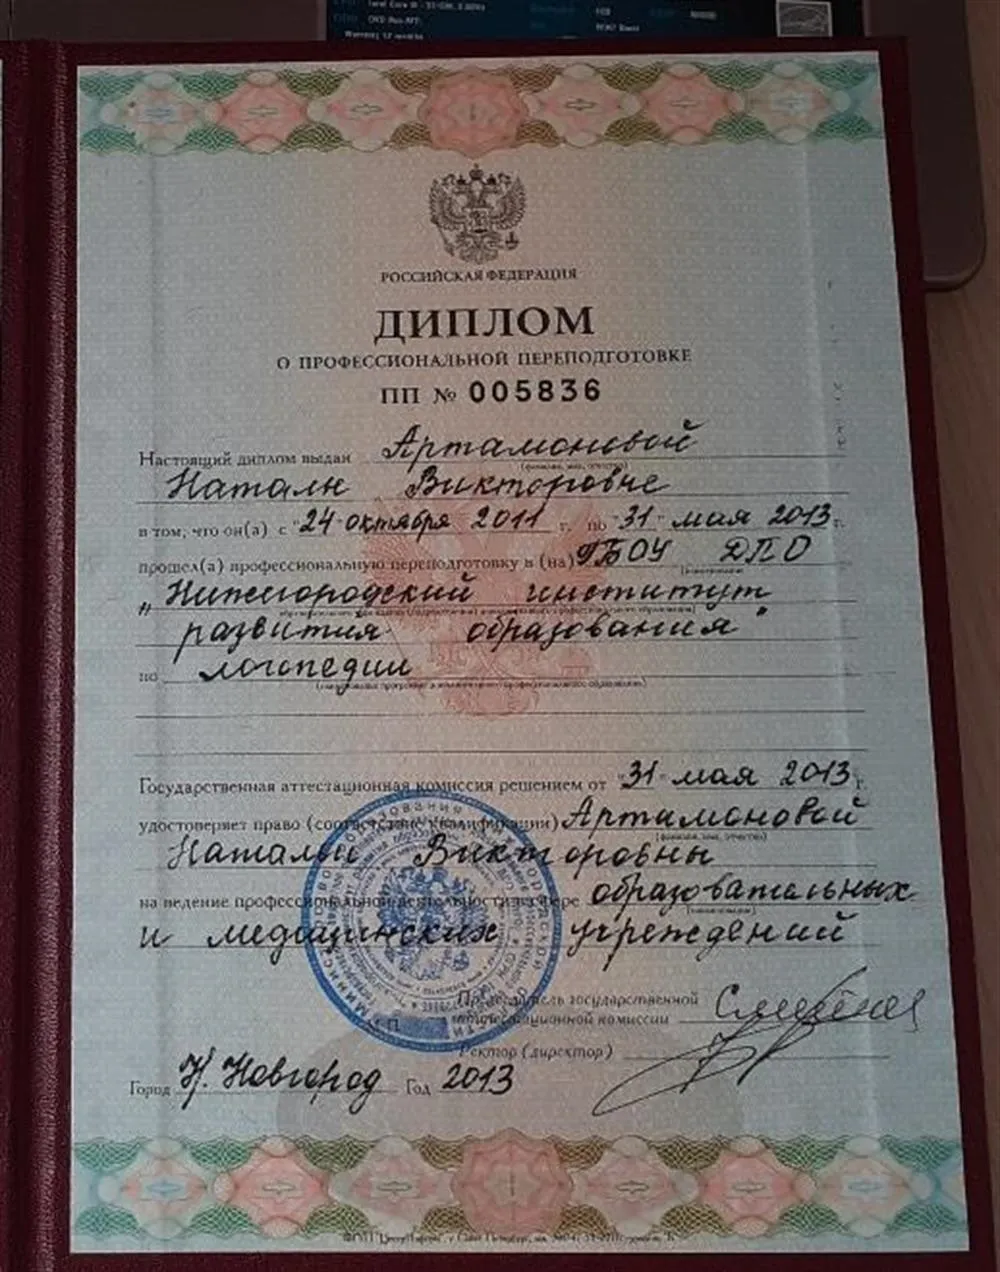 РОССИЙСКАЯ ФЕДЕРАЦИЯ
ДИПЛОМ
О ПРОФЕССИОНАЛЬНОЙ ПЕРЕПОДГОТОВКЕ
ПП № 005836
Настоящий диплом выдан Артамоновой
(фамилия, имя, отчество)
Наталье Викторовне
в том, что он(а) с "24" октября 2011 г. по "31" мая 2013 г.
прошел(а) профессиональную переподготовку в (на) ГБОУ ДПО
"Нижегородский институт
развития образования"
по логопедии
(наименование программы дополнительного профессионального образования)
Государственная аттестационная комиссия решением от "31" мая 2013 г.
удостоверяет право (соответствие квалификации) Артамоновой
(фамилия, имя, отчество)
Натальи Викторовны
на ведение профессиональной деятельности в сфере образовательных
и медицинских учреждений
Председатель государственной
аттестационной комиссии
М.П.
Ректор (директор)
Город Н. Новгород Год 2013